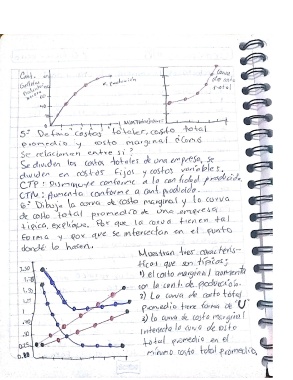 Cant.
Galletas
producción
Curva
de costo
total
5: Defina costos totales, costo total
promedio y costo marginal ¿Cómo
se relacionan entre si?
Se dividen los costos totales de una empresa, se
dividen en costos fijos y costos variables.
CTP: Disminuye conforme a la cantidad producida.
CTM: Aumenta conforme a cant. producida.
6: Dibuja la curva de costo marginal y la curva
de costo total promedio de una empresa
tipica, explique. Por que la curva tienen tal
forma y por que se intersectan en el punto
donde lo hacen.
Muestran tres caracteris-
ticas que son tipicas:
1) el costo marginal aumenta
con la cant. de producción.
2) La curva de costo total
promedio tiene forma de "U"
3) la curva de costo marginal
intersecta la curva de costo
total promedio en el
minimo costo total promedio.